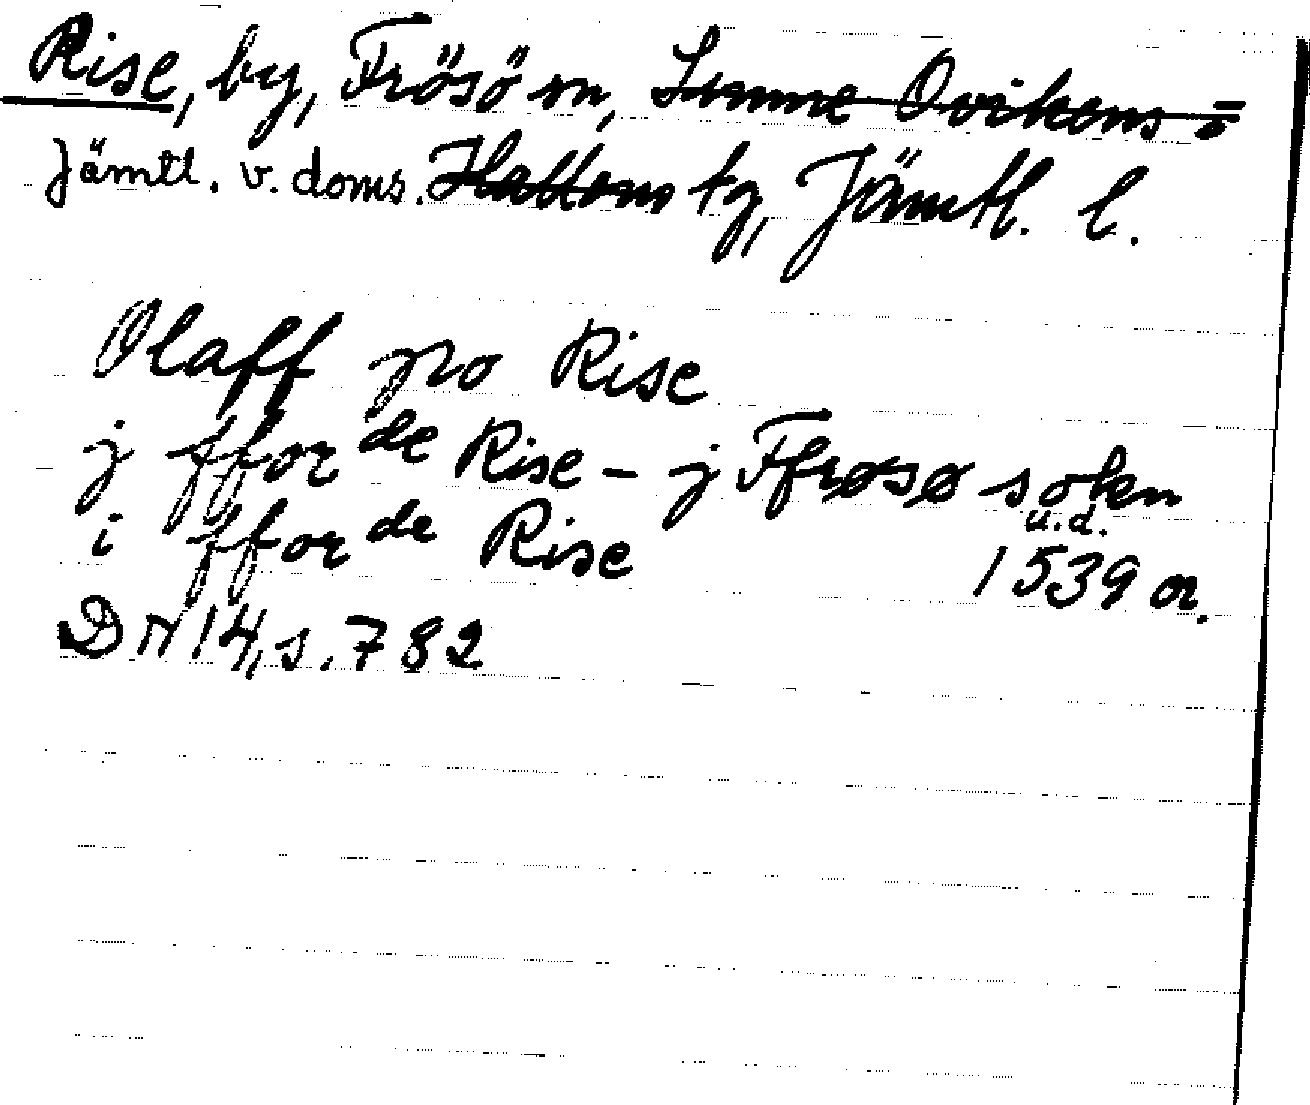 Rise, by, Frösö sn, Sunne Ovikens =
Jämtl. v. doms. Hattens tg, Jämtl. l.
Olaff pro Rise
j ffor de Rise - j Ffrøsø sokn
i ffor de Rise u.d. 1539 or.
DN 14, s. 782